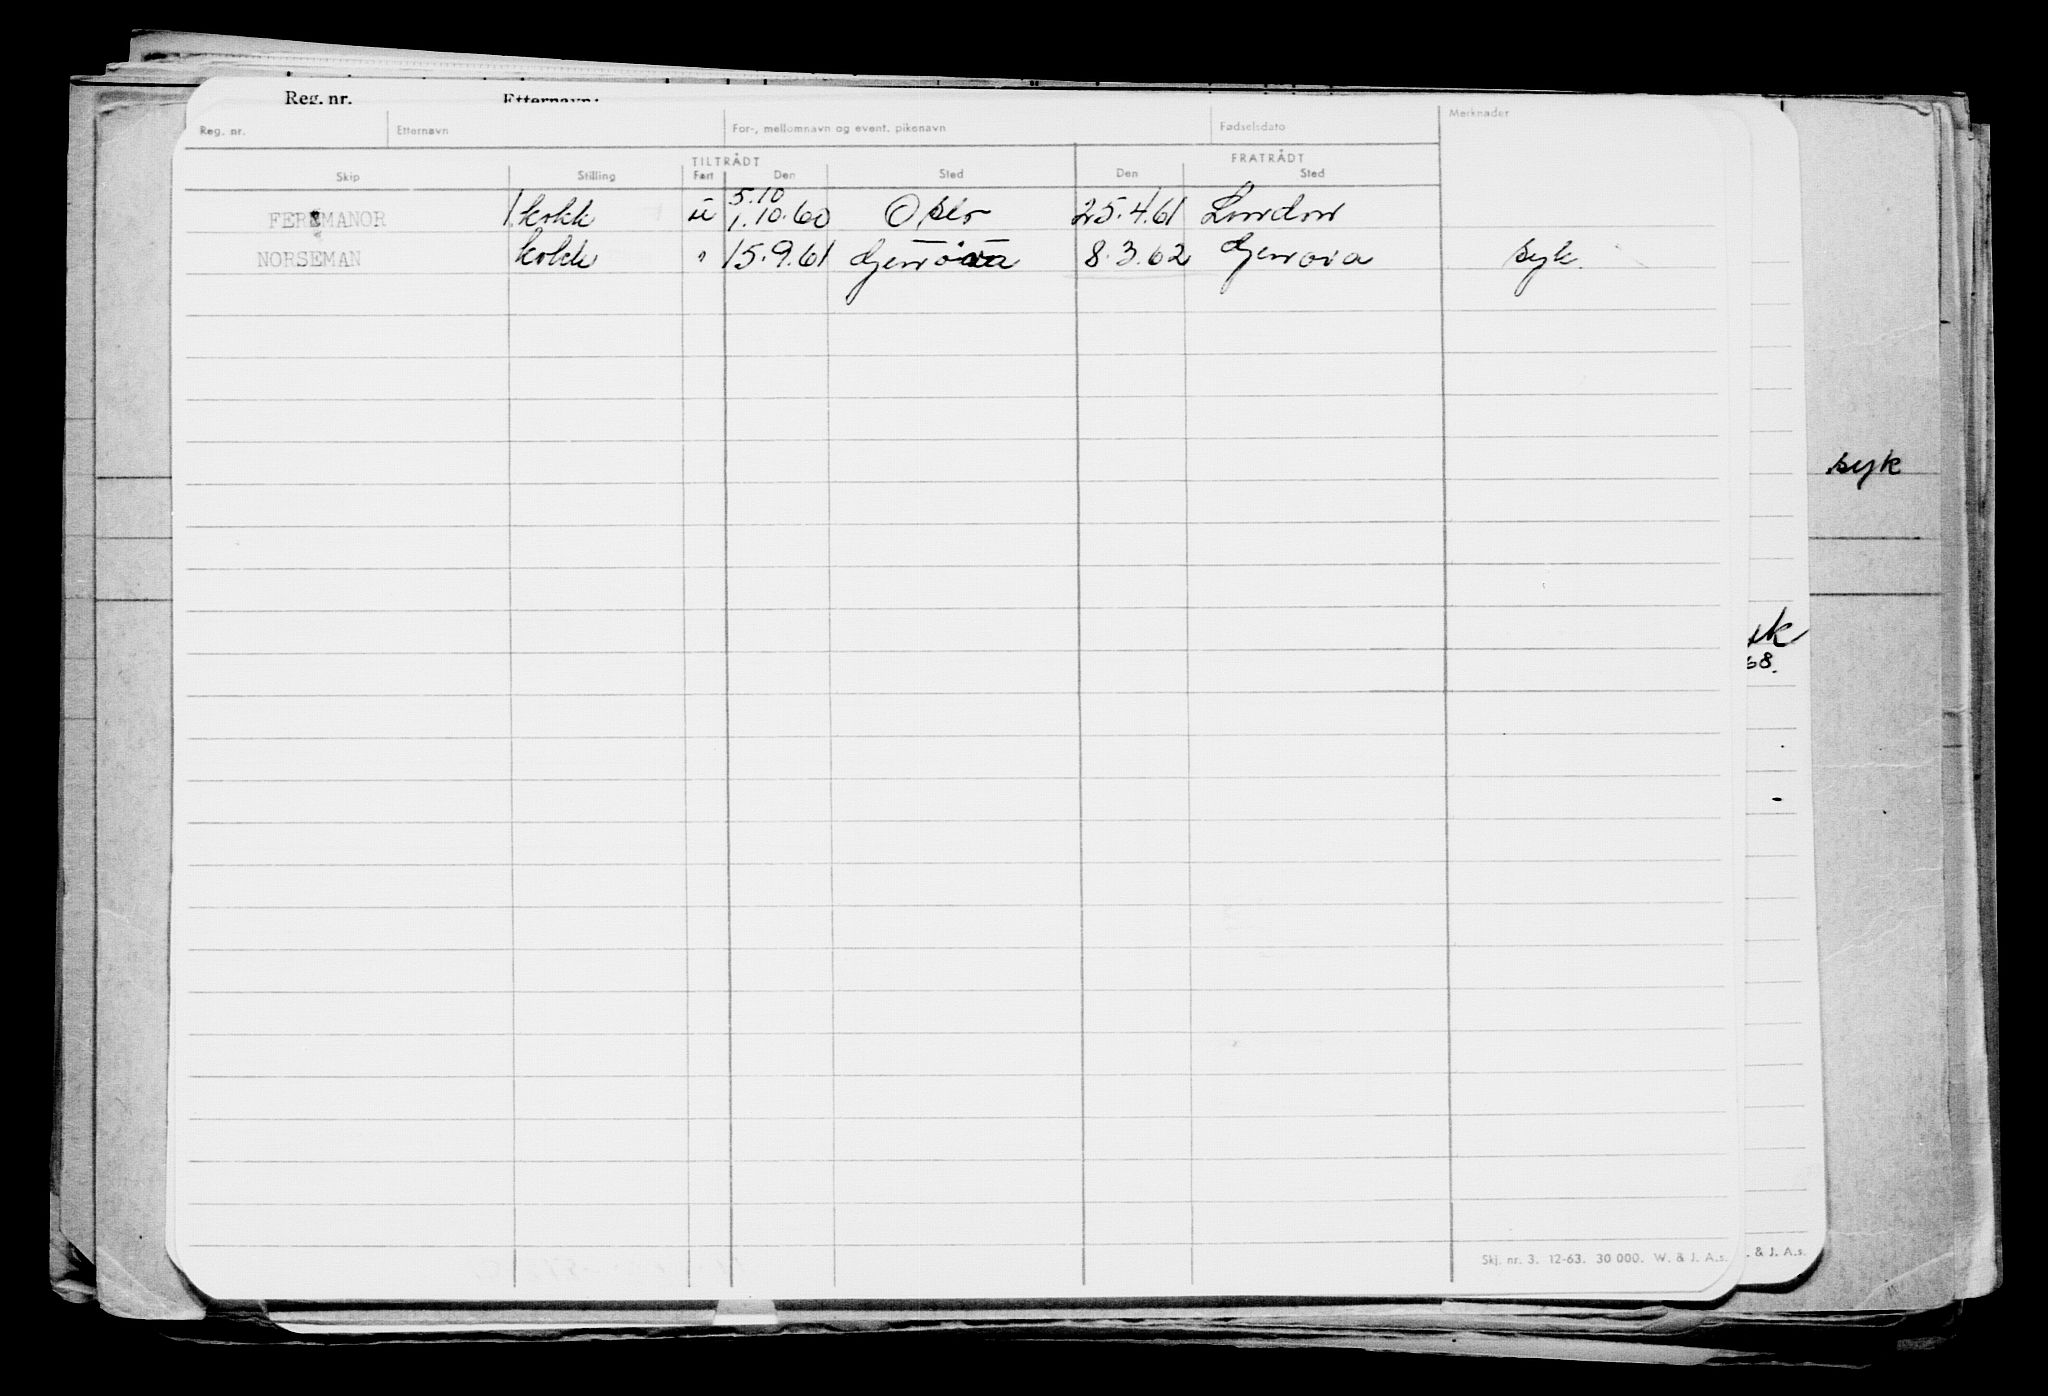 Reg. nr. Etternavn:
Reg. nr. Etternavn For-, mellomnavn og event. pikenavn Fødselsdato Merknader
TILTRÅDT FRATRÅDT
Skip Stilling Fart Den Sted Den Sted
5.10
FERNMANOR 1. kokk u 1.10.60 Oslo 25.4.61 London
NORSEMAN kokk " 15.9.61 Genova 8.3.62 Genova syk.
syk
68.
Skj. nr. 3. 12-63. 30 000. W. & J. A.s. . & J. A.s.